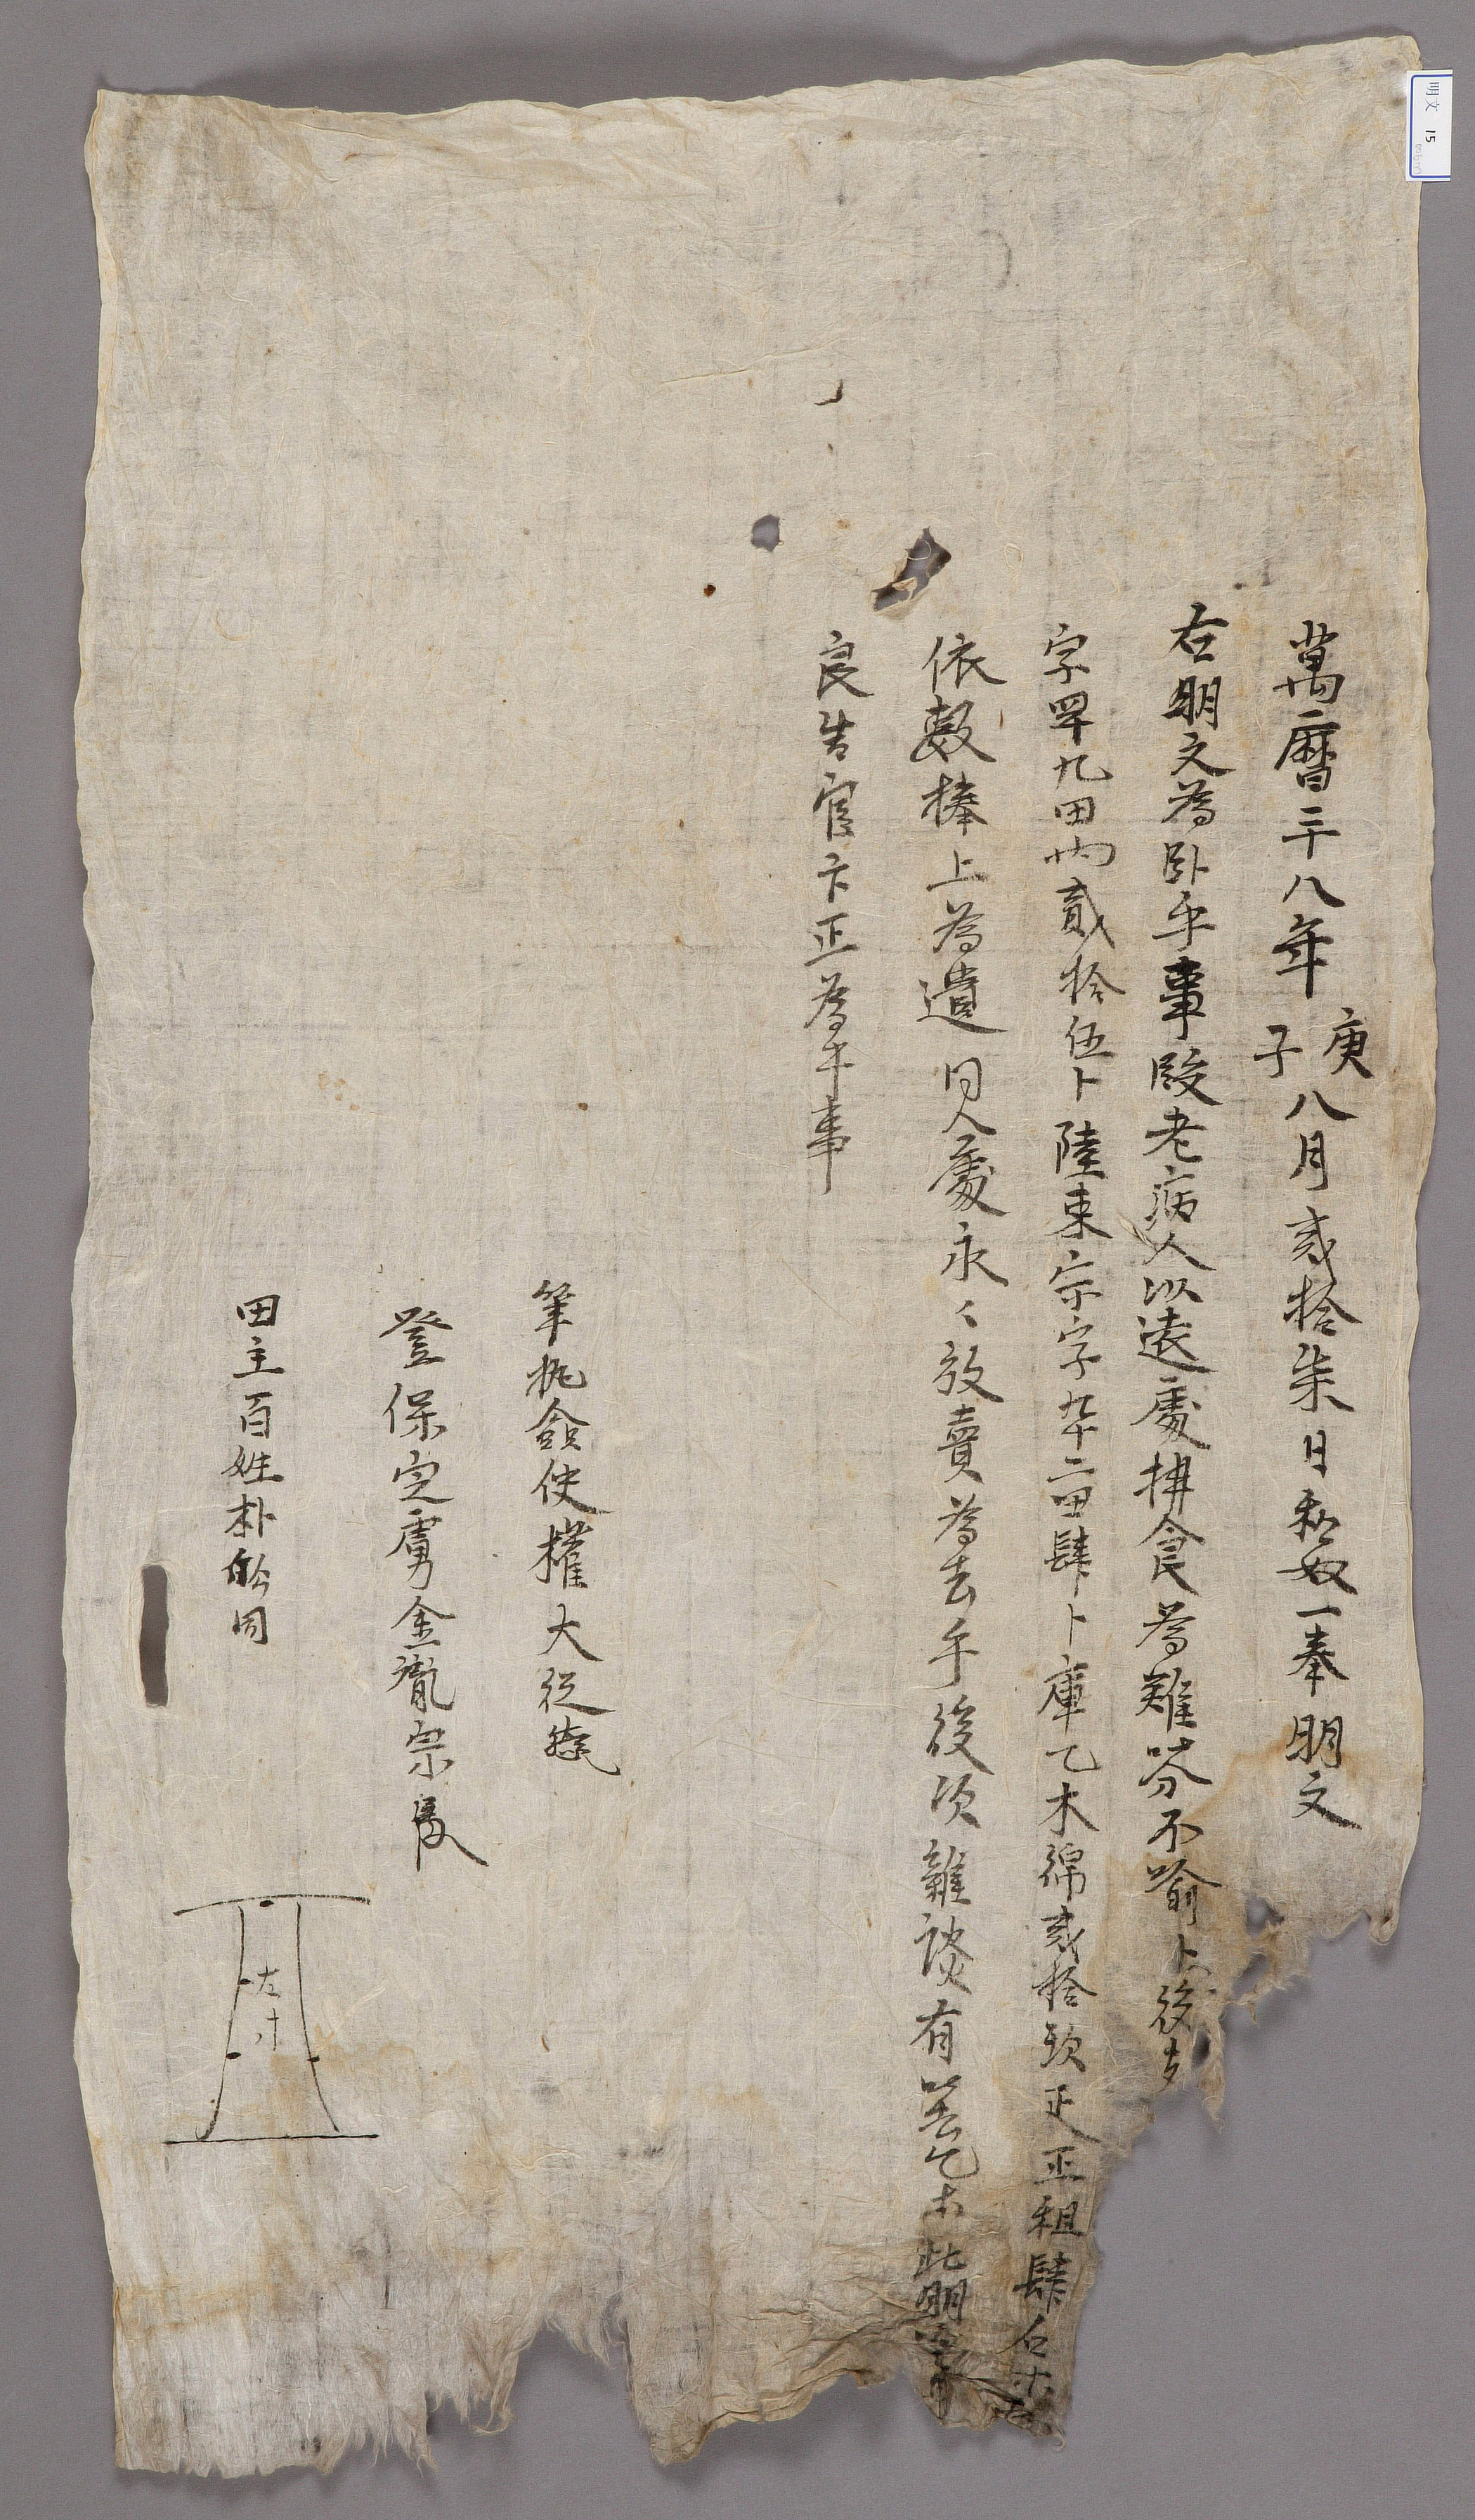 萬曆三十八年庚子八月貳拾柒日私奴一奉明文
右明文爲臥乎事段老病人以遠處耕食爲難叱分不喩卜後
字罕九田內貳拾伍卜陸束宗字九十二田肆卜庫乙木綿貳拾疋正租肆石
依數捧上爲遣同人處永〻放賣爲去乎後次雜談有去乙木此明文
良告官卞正爲乎事
筆執僉使權大
登保定虜金胤宗
田主百姓朴同
左寸
明文 15